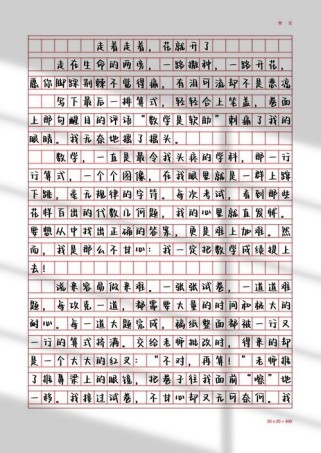 作文
走着走着，花就开了
走在生命的两旁，一路撒种，一路开花，
愿你脚踩荆棘不觉得痛，有泪可流却不是悲凉
写下最后一排算式，轻轻合上笔盖，卷面
上那句醒目的评语“数学是软肋”刺痛了我的
眼睛。我无奈地摇了摇头。
数学，一直是最令我头疼的学科，那一行
行算式，一个个图像，在我眼里就是一群上蹿
下跳，毫无规律的字符。每次考试，看到那些
花样百出的代数几何题，我的心里就直发怵。
要想从中找出正确的答案，更是难上加难。然
而，我是那么不甘心：我一定把数学成绩提上
去！
说来容易做来难。一张张试卷，一道道难
题，每攻克一道，都需要大量的时间和极大的
耐心。每一道大题完成，稿纸整面都被一行又
一行的算式挤满。交给老师批改时，得来的却
是一个大大的红叉：“不对，再算！”老师推
了推鼻梁上的眼镜，把卷子往我面前“嚓”地
一移。我接过试卷，不甘心却又无可奈何。我
20×20=400